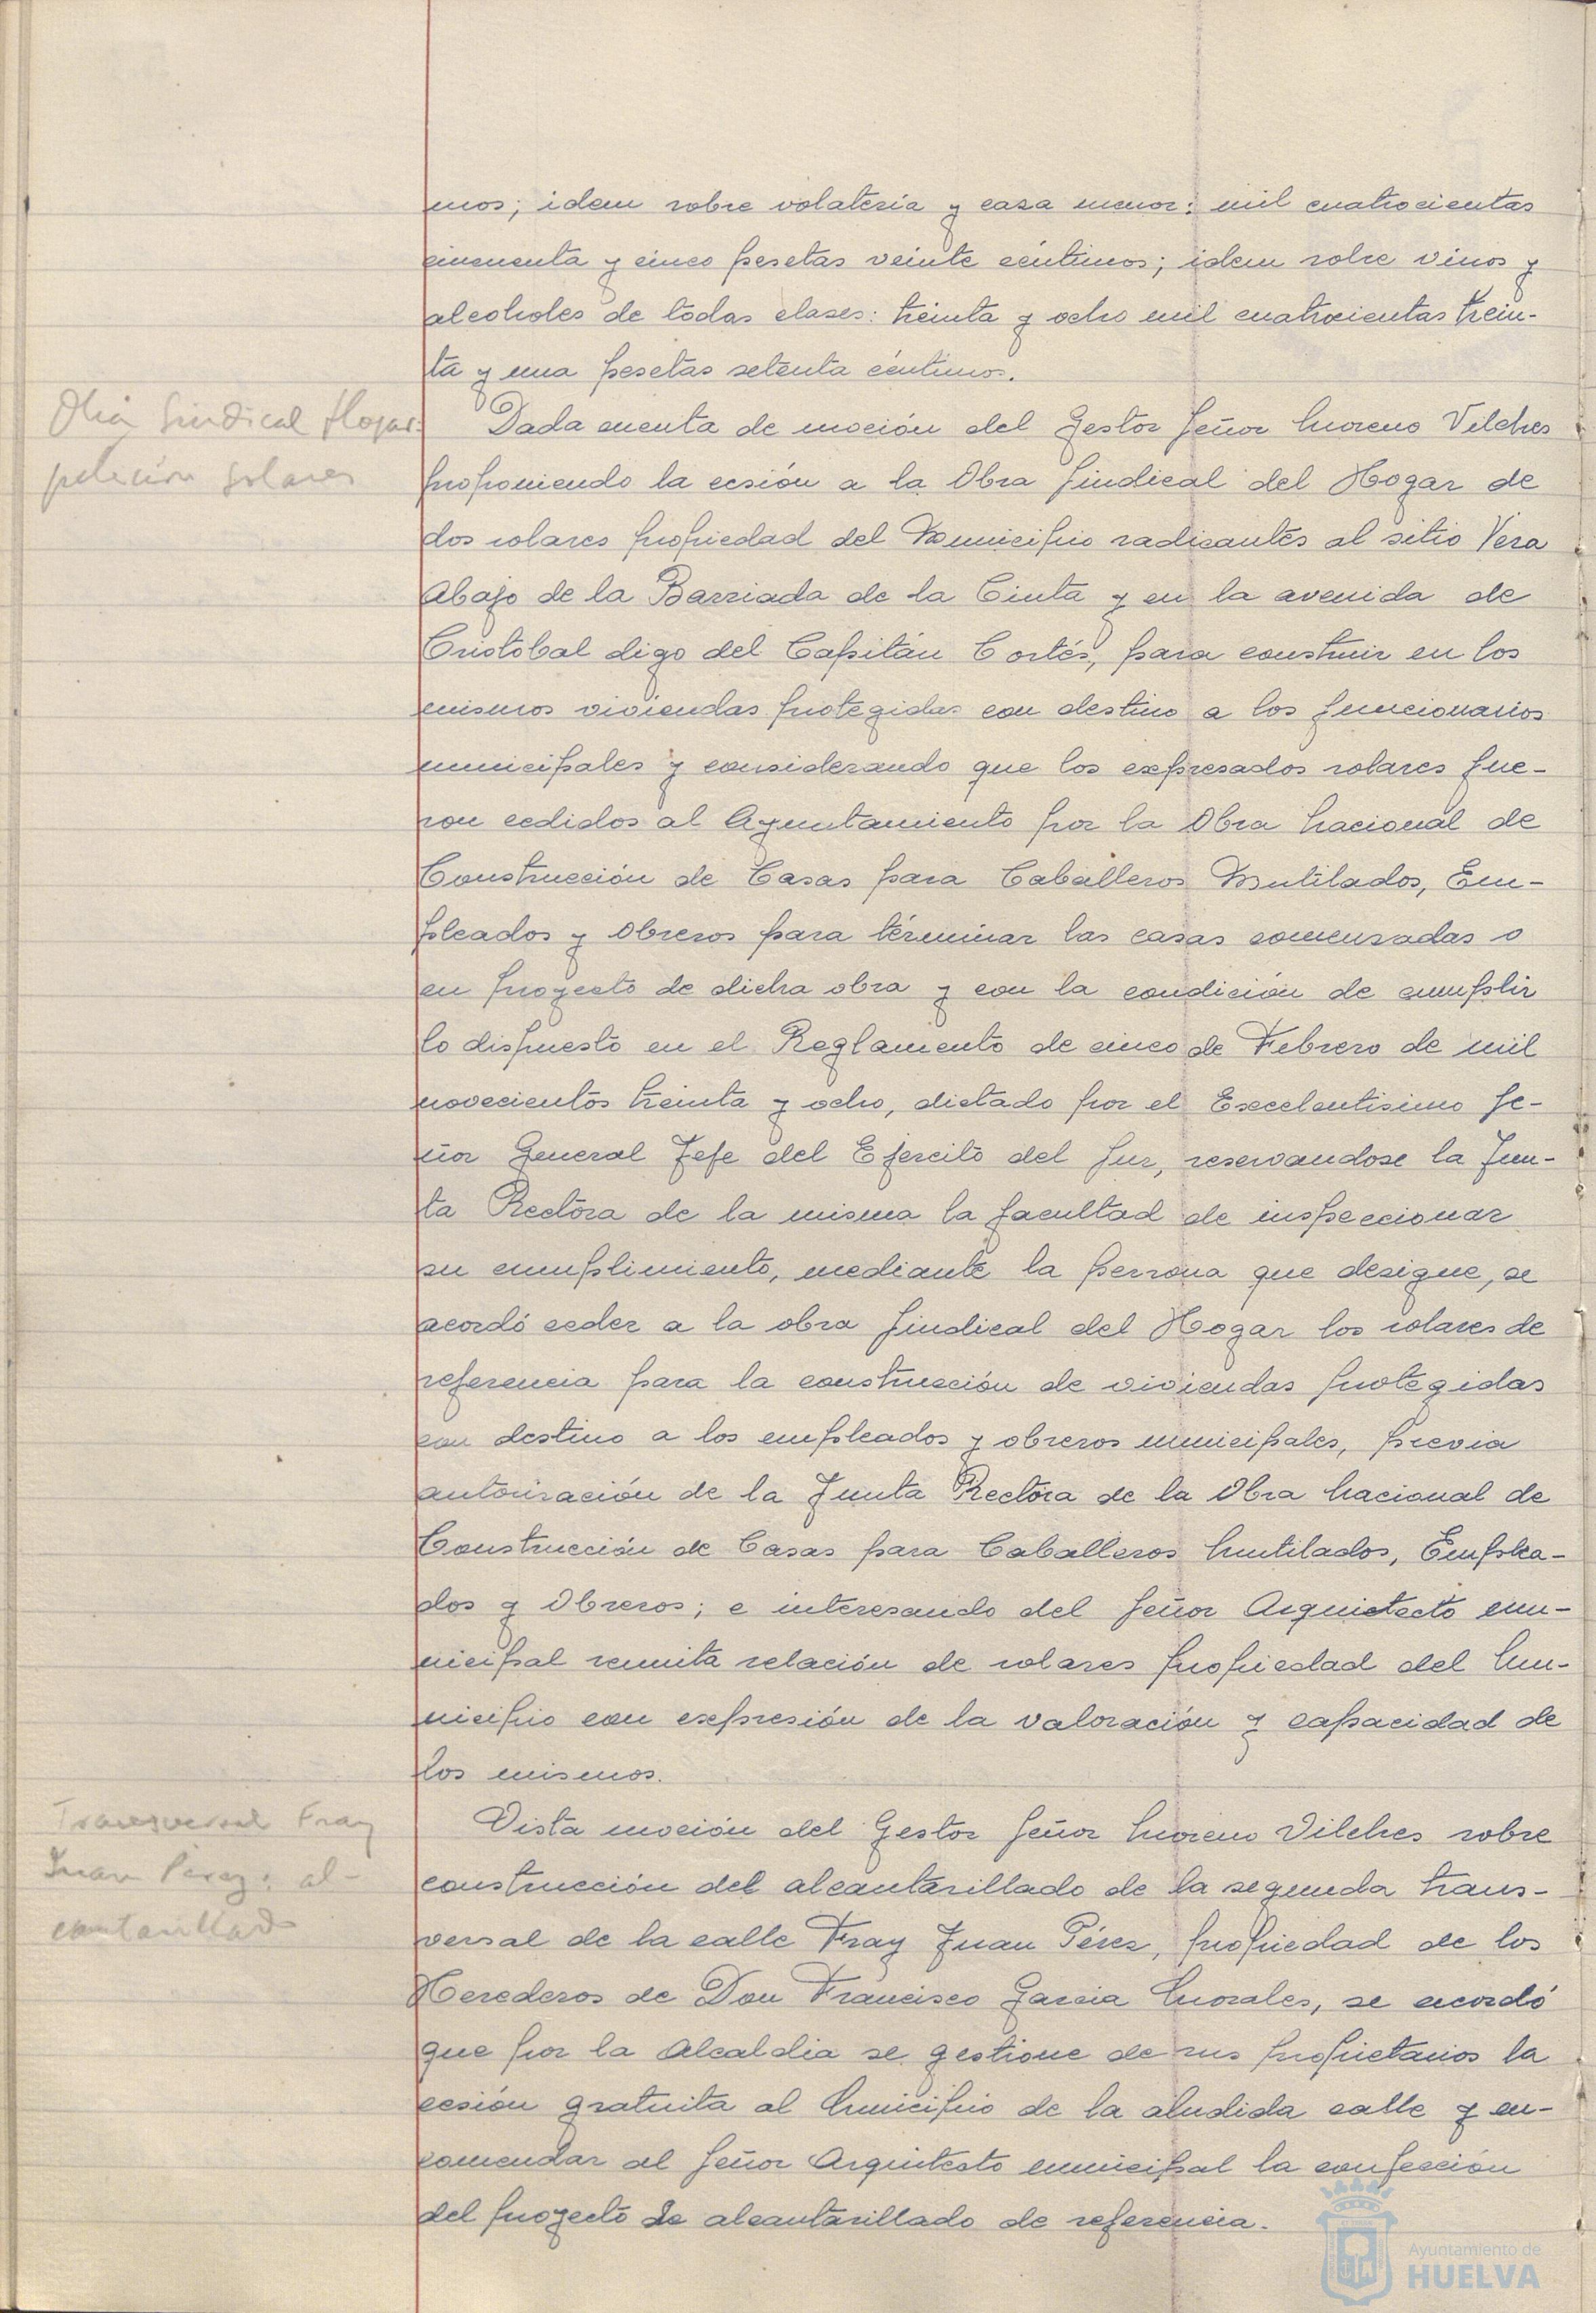 mos; idem sobre volatería y caza menor: mil cuatrocientas
cincuenta y cinco pesetas veinte céntimos; idem sobre vinos y
alcoholes de todas clases: treinta y ocho mil cuatrocientas trein-
ta y una pesetas setenta céntimos.
Obra Sindical Hogar:
petición solares
Dada cuenta de moción del Gestor Señor Moreno Vilches
proponiendo la cesión a la Obra Sindical del Hogar de
dos solares propiedad del Municipio radicantes al sitio Vera
Abajo de la Barriada de la Cinta y en la avenida de
Cristobal digo del Capitán Cortés, para construir en los
mismos viviendas protegidas con destino a los funcionarios
municipales y considerando que los expresados solares fue-
ron cedidos al Ayuntamiento por la Obra Nacional de
Construcción de Casas para Caballeros Mutilados, Em-
pleados y Obreros para terminar las casas comenzadas o
en proyecto de dicha obra y con la condición de cumplir
lo dispuesto en el Reglamento de cinco de Febrero de mil
novecientos treinta y ocho, dictado por el Excelentisimo Se-
ñor General Jefe del Ejercito del Sur, reservandose la Jun-
ta Rectora de la misma la facultad de inspeccionar
su cumplimiento, mediante la persona que designe, se
acordó ceder a la obra Sindical del Hogar los solares de
referencia para la construcción de viviendas protegidas
con destino a los empleados y obreros municipales, previa
autorización de la Junta Rectora de la Obra Nacional de
Construcción de Casas para Caballeros Mutilados, Emplea-
dos y Obreros; e interesando del Señor Arquictecto mu-
nicipal remita relación de solares propiedad del Mu-
nicipio con expresión de la valoración y capacidad de
los mismos.
Transversal Fray
Juan Pérez: al-
cantarillado
Vista moción del Gestor Señor Moreno Vilches sobre
construcción del alcantarillado de la segunda trans-
versal de la calle Fray Juan Pérez, propiedad de los
Herederos de Don Francisco Garcia Morales, se acordó
que por la Alcaldia se gestione de sus propietarios la
cesión gratuita al Municipio de la aludida calle y en-
comendar al Señor Arquitecto municipal la confección
del proyecto de alcantarillado de referencia.
Ayuntamiento de
HUELVA